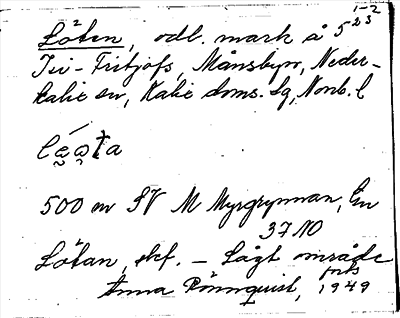 1-2
Löten, odl. mark å 5 23
Ivi-Fritjofs, Månsbyn, Neder-
kalix sn, Kalix doms. sg, Norrb. l
500 m SV M Myrgrynnan, En
37 NO
Lötan, def. - Lågt område
Anna Rönnquist, 1949